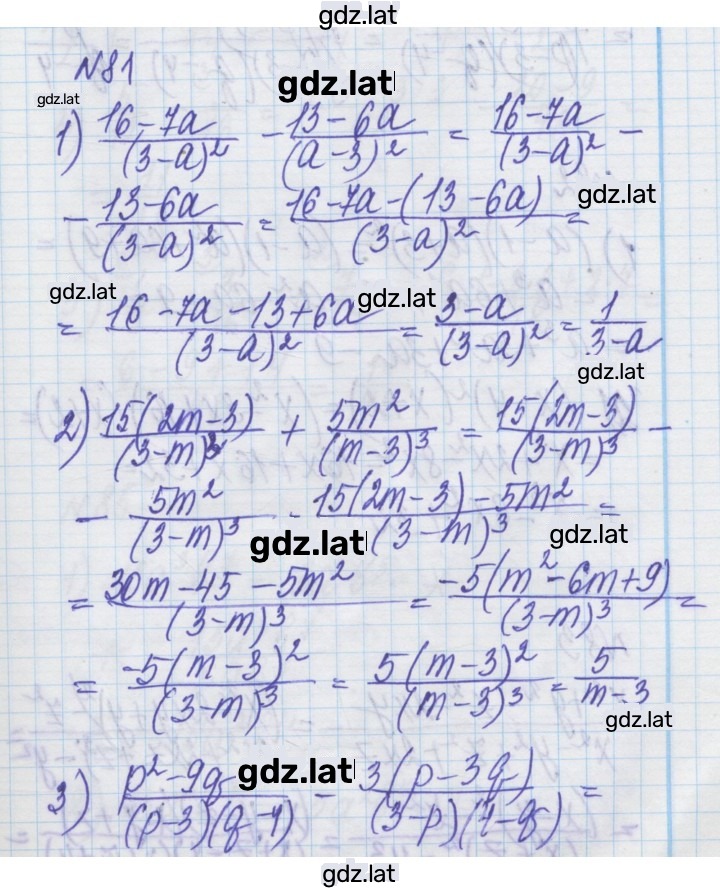 gdz.lat
N81
gdz.lat
gdz.lat
1) (16-7a)/(3-a)² - (13-6a)/(a-3)² = (16-7a)/(3-a)² -
gdz.lat
- (13-6a)/(3-a)² = (16-7a-(13-6a))/(3-a)² =
gdz.lat
gdz.lat
= (16-7a-13+6a)/(3-a)² = (3-a)/(3-a)² = 1/(3-a)
gdz.lat
2) 15(2m-3)/(3-m)³ + 5m²/(m-3)³ = 15(2m-3)/(3-m)³ -
- 5m²/(3-m)³ - (15(2m-3)-5m²)/(3-m)³ =
gdz.lat
gdz.lat
= (30m-45-5m²)/(3-m)³ = -5(m²-6m+9)/(3-m)³ =
= -5(m-3)²/(3-m)³ = 5(m-3)²/(m-3)³ = 5/(m-3)
gdz.lat
gdz.lat
3) (p²-9q)/((p-3)(q-7)) - 3(p-3q)/((3-p)(7-q)) =
gdz.lat